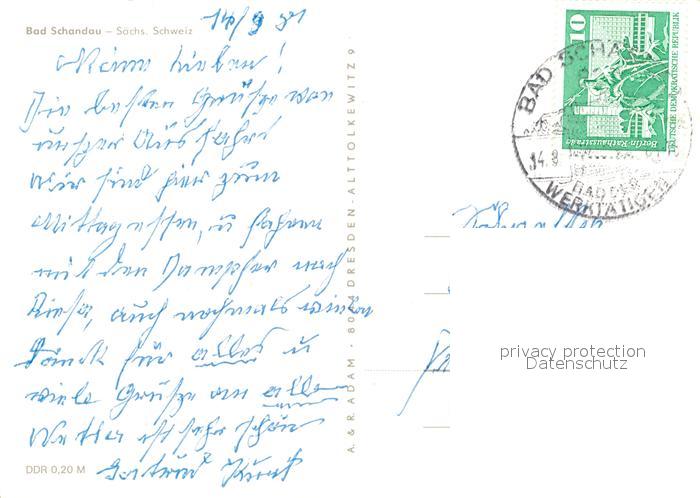 Bad Schandau – Sächs. Schweiz
14/9 81
Meine Lieben!
Die besten Grüße von
unserer Ausfahrt
wir sind hier zum
Mittagessen, u fahren
mit den Dampfer nach
Riesa, auch nochmals
Dank für alles u
viele Grüße an alle
Wetter ist sehr schön
Gertrud
DDR 0,20 M
A. & R. ADAM · DRESDEN - ALTTOLKEWITZ 9
10
DEUTSCHE DEMOKRATISCHE REPUBLIK
Berlin Rathausstraße
BAD SCHAN
14.9
BAD DER
WERKTÄTIGEN
privacy protection
Datenschutz